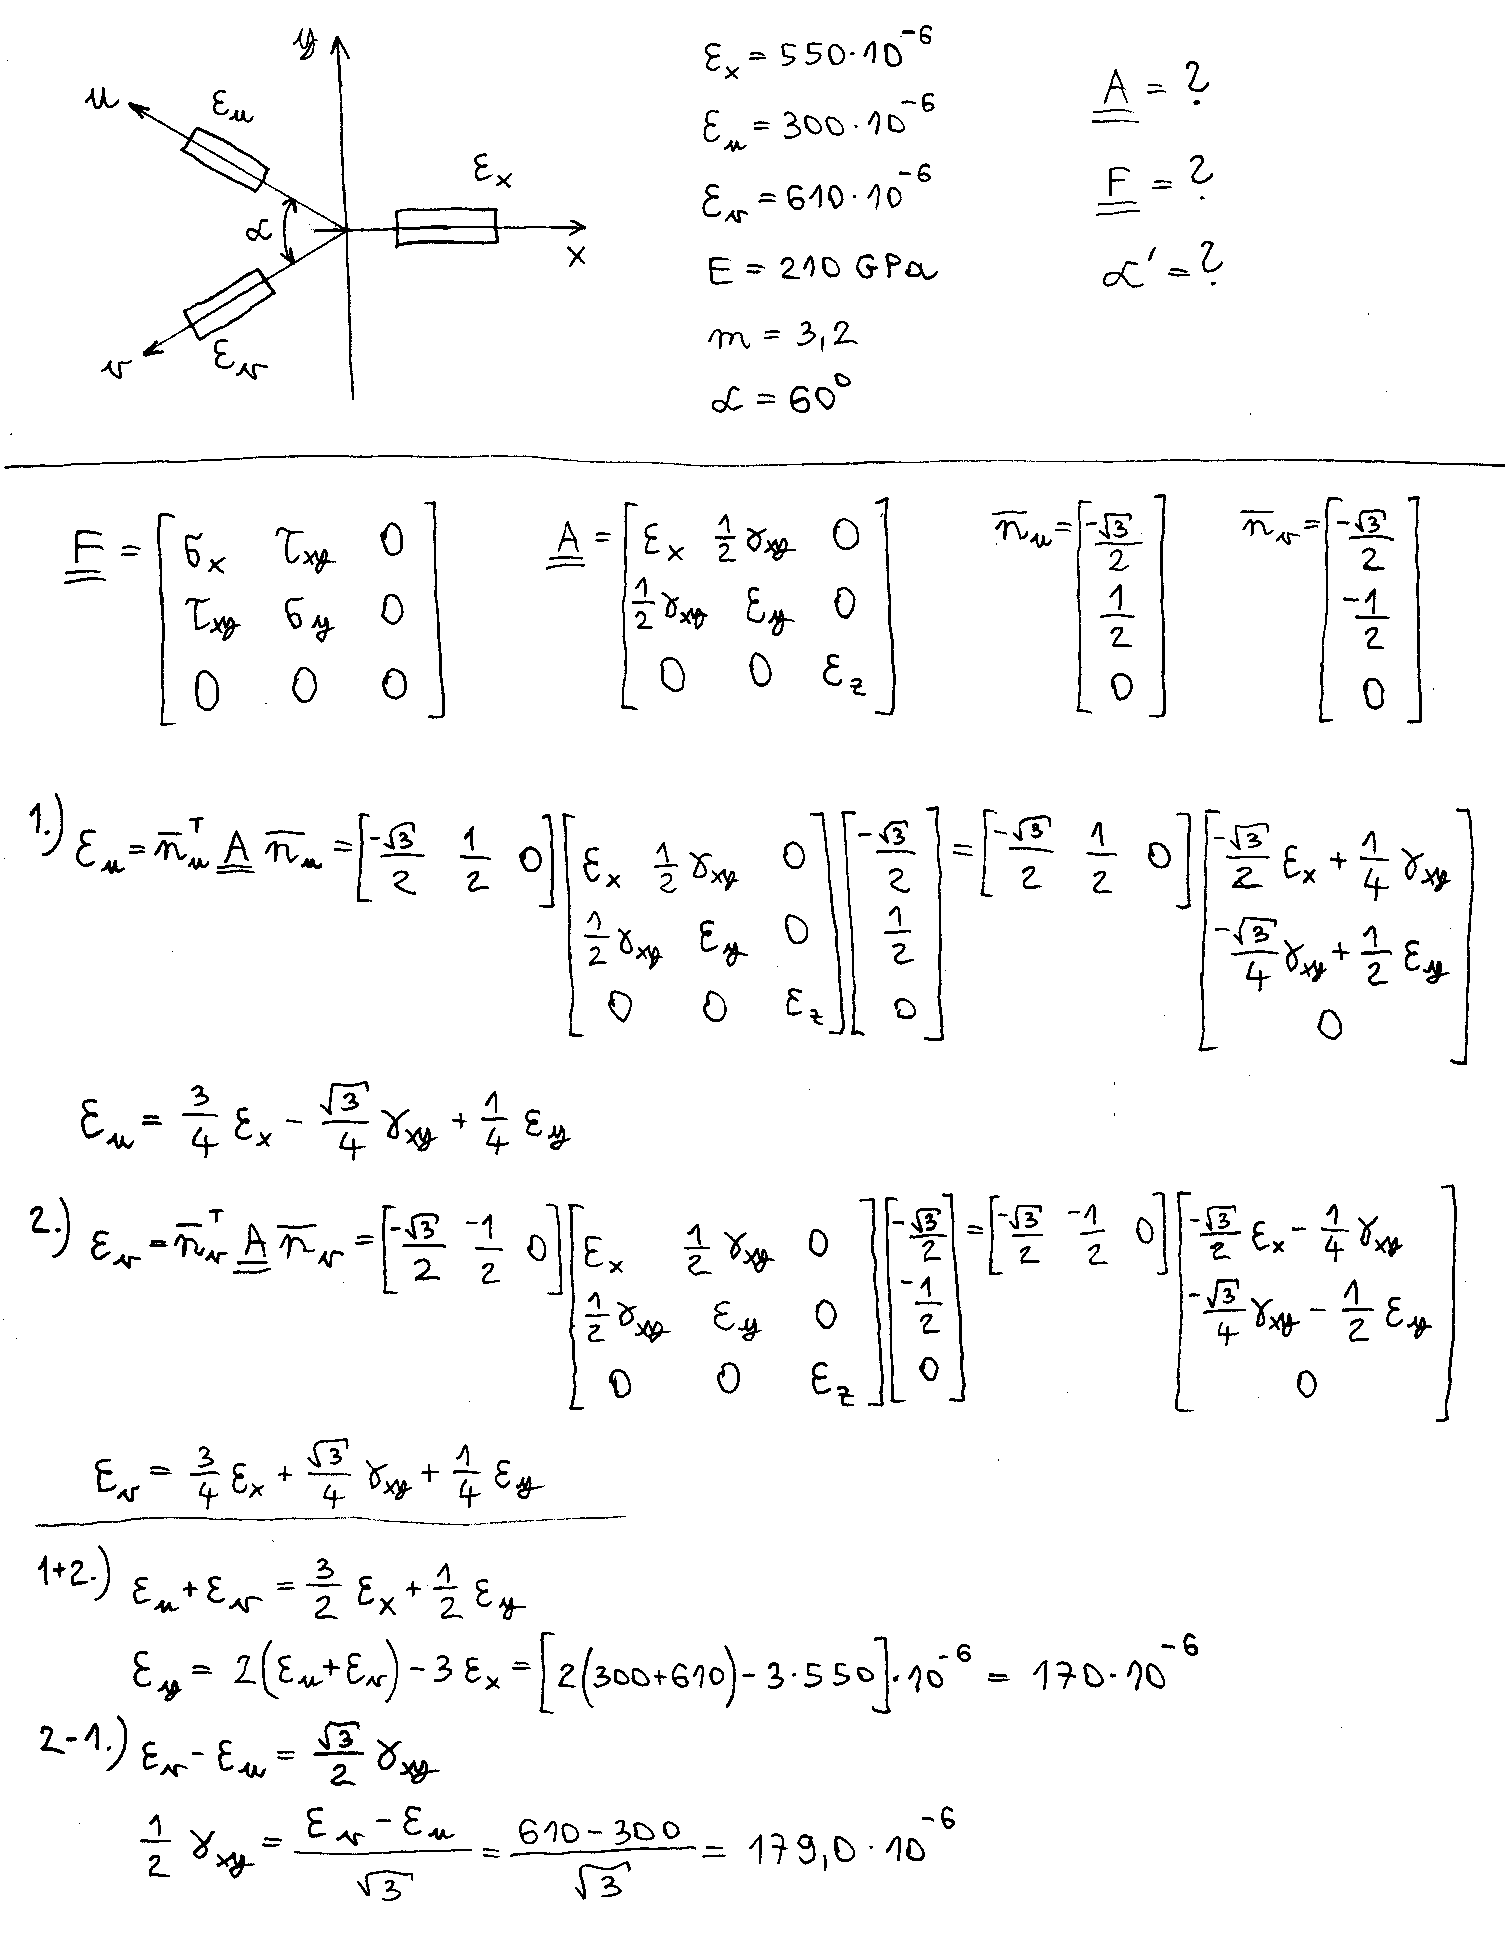 y
u εu εx
α
x
v εv
εx = 550·10⁻⁶
εu = 300·10⁻⁶
εv = 610·10⁻⁶
E = 210 GPa
m = 3,2
α = 60°
A = ?
F = ?
α' = ?
F = [σx τxy 0; τxy σy 0; 0 0 0] A = [εx ½γxy 0; ½γxy εy 0; 0 0 εz] n̄u = [-√3/2; 1/2; 0] n̄v = [-√3/2; -1/2; 0]
1.) εu = n̄uᵀ A n̄u = [-√3/2 1/2 0] [εx ½γxy 0; ½γxy εy 0; 0 0 εz] [-√3/2; 1/2; 0] = [-√3/2 1/2 0] [-√3/2 εx + 1/4 γxy; -√3/4 γxy + 1/2 εy; 0]
εu = 3/4 εx - √3/4 γxy + 1/4 εy
2.) εv = n̄vᵀ A n̄v = [-√3/2 -1/2 0] [εx ½γxy 0; ½γxy εy 0; 0 0 εz] [-√3/2; -1/2; 0] = [-√3/2 -1/2 0] [-√3/2 εx - 1/4 γxy; -√3/4 γxy - 1/2 εy; 0]
εv = 3/4 εx + √3/4 γxy + 1/4 εy
1+2.) εu + εv = 3/2 εx + 1/2 εy
εy = 2(εu + εv) - 3 εx = [2(300+610) - 3·550]·10⁻⁶ = 170·10⁻⁶
2-1.) εv - εu = √3/2 γxy
1/2 γxy = (εv - εu)/√3 = (610 - 300)/√3 = 179,0·10⁻⁶